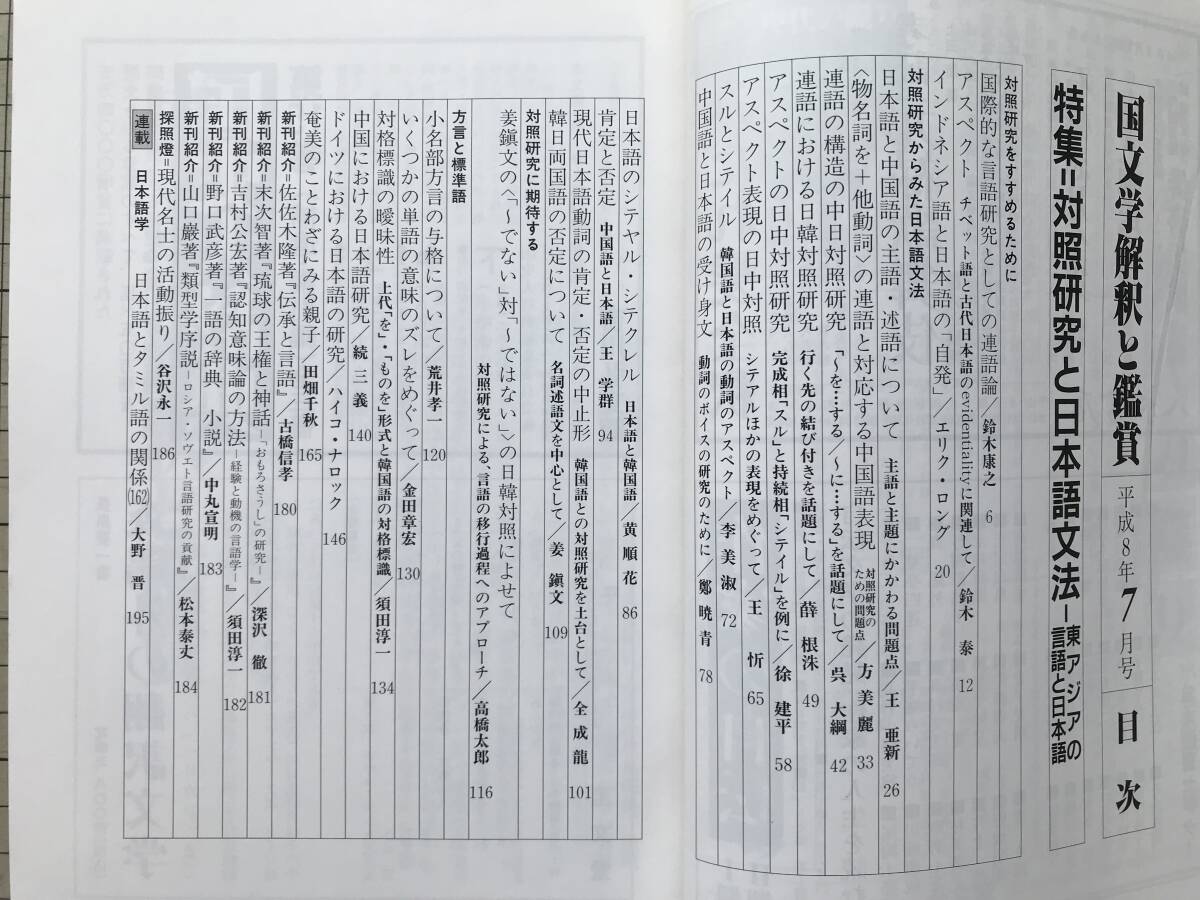 国文学解釈と鑑賞 平成8年7月号 目次
特集=対照研究と日本語文法―東アジアの言語と日本語
対照研究をすすめるために
国際的な言語研究としての連語論/鈴木康之 6
アスペクト チベット語と古代日本語のevidentialityに関連して/鈴木 泰 12
インドネシア語と日本語の「自発」/エリク・ロング 20
対照研究からみた日本語文法
日本語と中国語の主語・述語について 主語と主題にかかわる問題点/王 亜新 26
〈物名詞を+他動詞〉の連語と対応する中国語表現 対照研究のための問題点/方 美麗 33
連語の構造の中日対照研究 「〜を…する/〜に…する」を話題にして/呉 大綱 42
連語における日韓対照研究 行く先の結び付きを話題にして/薛 根洙 49
アスペクトの日中対照研究 完成相「スル」と持続相「シテイル」を例に/徐 建平 58
アスペクト表現の日中対照 シテアルほかの表現をめぐって/王 忻 65
スルとシテイル 韓国語と日本語の動詞のアスペクト/李 美淑 72
中国語と日本語の受け身文 動詞のボイスの研究のために/鄭 暁青 78
日本語のシテヤル・シテクレル 日本語と韓国語/黄 順花 86
肯定と否定 中国語と日本語/王 学群 94
現代日本語動詞の肯定・否定の中止形 韓国語との対照研究を土台として/全 成龍 101
韓日両国語の否定について 名詞述語文を中心として/姜 鎭文 109
対照研究に期待する
姜鎭文の〈「〜でない」対「〜ではない」〉の日韓対照によせて
対照研究による、言語の移行過程へのアプローチ/高橋太郎 116
方言と標準語
小名部方言の与格について/荒井孝一 120
いくつかの単語の意味のズレをめぐって/金田章宏 130
対格標識の曖昧性 上代「を」・「ものを」形式と韓国語の対格標識/須田淳一 134
中国における日本語研究/続 三義 140
ドイツにおける日本語の研究/ハイコ・ナロック 146
奄美のことわざにみる親子/田畑千秋 165
新刊紹介=佐佐木隆著『伝承と言語』/古橋信孝 180
新刊紹介=末次智著『琉球の王権と神話―「おもろさうし」の研究―』/深沢 徹 181
新刊紹介=吉村公宏著『認知意味論の方法―経験と動機の言語学―』/須田淳一 182
新刊紹介=野口武彦著『一語の辞典 小説』/中丸宣明 183
新刊紹介=山口巌著『類型学序説―ロシア・ソヴエト言語研究の貢献』/松本泰丈 184
探照燈=現代名士の活動振り/谷沢永一 186
連載 日本語学 日本語とタミル語の関係(162)/大野 晋 195